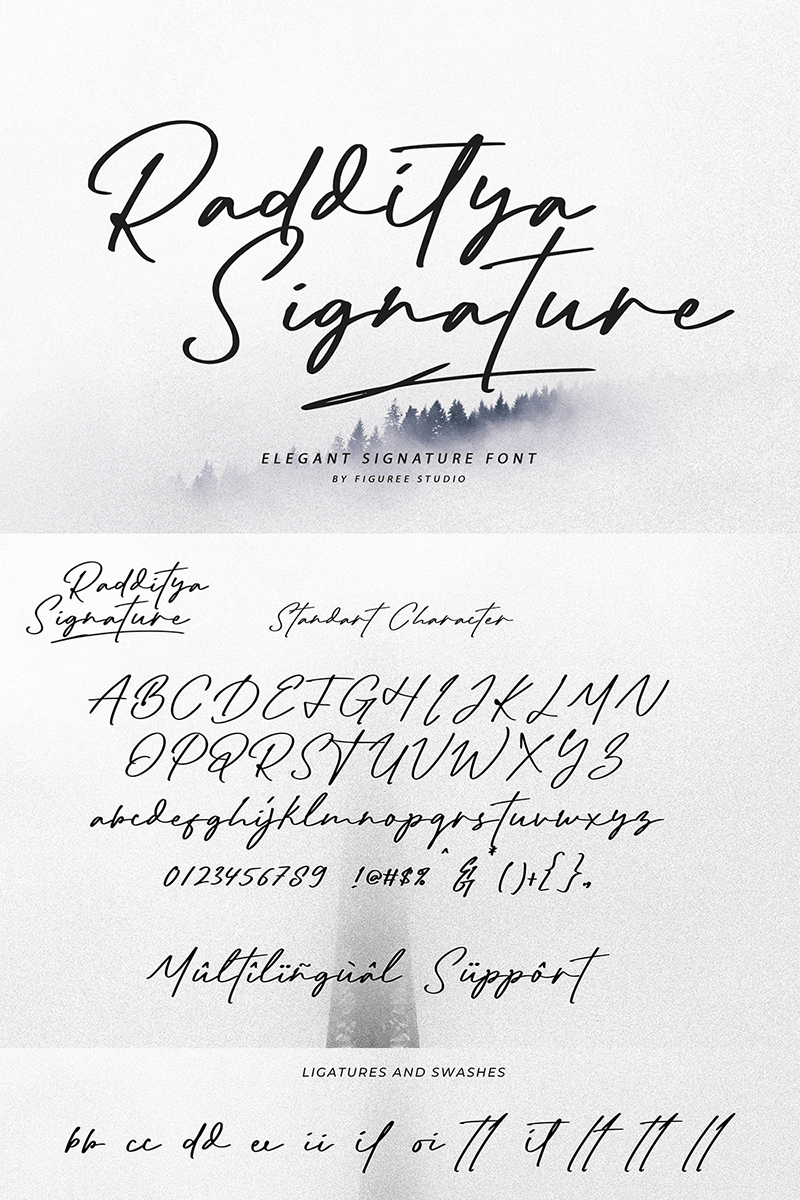 Radditya
Signature
ELEGANT SIGNATURE FONT
BY FIGUREE STUDIO
Radditya
Signature
Standart Character
ABCDEFGHIJKLMN
OPQRSTUVWXYZ
abcdefghijklmnopqrstuvwxyz
0123456789 !@#$%^&*()+{},.
Mûltîlïñgùâl Süppôrt
LIGATURES AND SWASHES
bb cc dd ee ii il oi tl it lt tt ll